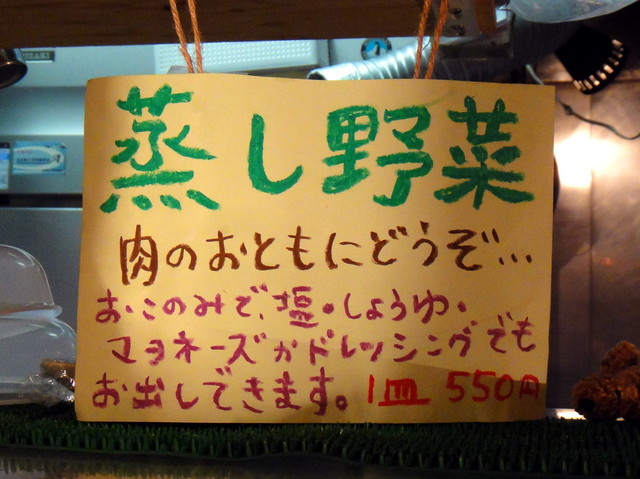 蒸し野菜
肉のおともにどうぞ...
おこのみで、塩・しょうゆ・
マヨネーズかドレッシングでも
お出しできます。1皿 550円